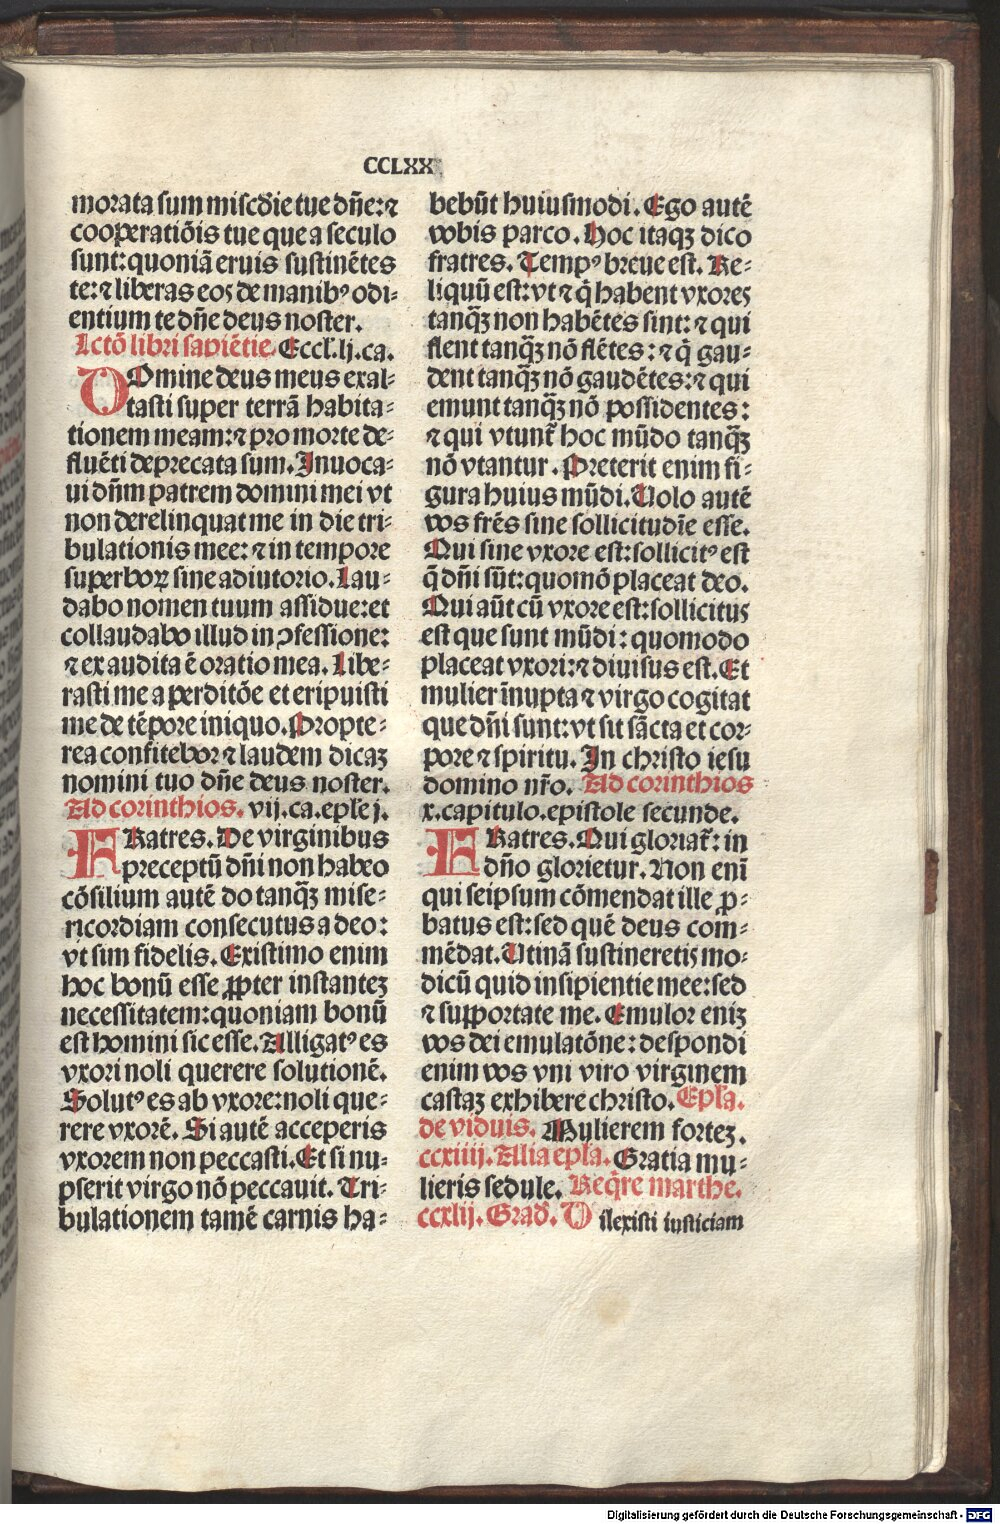 CCLXX
morata sum misc̄die tue dñe: ⁊
cooperatiōis tue que a seculo
sunt: quoniā eruis sustinētes
te: ⁊ liberas eos de manibꝰ odi-
entium te dñe deus noster.
Lctō libri sapiētie. Eccl. lj. ca.
Domine deus meus exal-
tasti super terrā habita-
tionem meam: ⁊ pro morte de-
fluēti deprecata sum. Inuoca-
ui dñm patrem domini mei vt
non derelinquat me in die tri-
bulationis mee: ⁊ in tempore
superboꝝ sine adiutorio. Lau-
dabo nomen tuum assidue: et
collaudabo illud in ꝯfessione:
⁊ exaudita ē oratio mea. Libe-
rasti me a perditōe et eripuisti
me de tēpore iniquo. Propte-
rea confitebor ⁊ laudem dicaꝫ
nomini tuo dñe deus noster.
Ad corinthios. vij. ca. eple j.
FRatres. De virginibus
preceptū dñi non habeo
cōsilium autē do tanq̄ꝫ mise-
ricordiam consecutus a deo:
vt sim fidelis. Existimo enim
hoc bonū esse ꝓpter instanteꝫ
necessitatem: quoniam bonū
est homini sic esse. Alligatꝰ es
vxori noli querere solutionē.
Solutꝰ es ab vxore: noli que-
rere vxorē. Si autē acceperis
vxorem non peccasti. Et si nu-
pserit virgo nō peccauit. Tri-
bulationem tamē carnis ha-
bebūt huiusmodi. Ego autē
vobis parco. Hoc itaqꝫ dico
fratres. Tempꝰ breue est. Re-
liquū est: vt ⁊ q̄ habent vxores
tanq̄ꝫ non habētes sint: ⁊ qui
flent tanq̄ꝫ nō flētes: ⁊ q̄ gau-
dent tanq̄ꝫ nō gaudētes: ⁊ qui
emunt tanq̄ꝫ nō possidentes:
⁊ qui vtunt᷑ hoc mūdo tanq̄ꝫ
nō vtantur. Preterit enim fi-
gura huius mūdi. Uolo autē
vos frēs sine sollicitudīe esse.
Qui sine vxore est: sollicitꝰ est
q̄ dñi sūt: quomō placeat deo.
Qui aūt cū vxore est: sollicitus
est que sunt mūdi: quomodo
placeat vxori: ⁊ diuisus est. Et
mulier īnupta ⁊ virgo cogitat
que dñi sunt: vt sit sācta et cor-
pore ⁊ spiritu. In christo iesu
domino nr̄o. Ad corinthios
x. capitulo. epistole secunde.
FRatres. Qui gloriat᷑: in
dño glorietur. Non enī
qui seipsum cōmendat ille ꝓ-
batus est: sed quē deus com-
mēdat. Utinā sustineretis mo-
dicū quid insipientie mee: sed
⁊ supportate me. Emulor eniꝫ
vos dei emulatōne: despondi
enim vos vni viro virginem
castaꝫ exhibere christo. Epl̄a.
de viduis. Mulierem forteꝫ.
ccxiiij. Alia epl̄a. Gratia mu-
lieris sedule. Req̄re marthe.
ccxlij. Grad̄. Dilexisti iusticiam
Digitalisierung gefördert durch die Deutsche Forschungsgemeinschaft - DFG